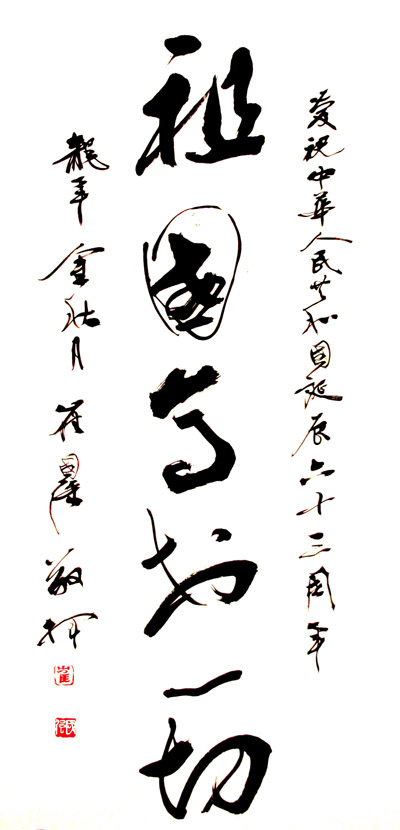 慶祝中華人民共和国誕辰六十三周年
祖國高於一切
龍年金秋月崔敬挥
崔